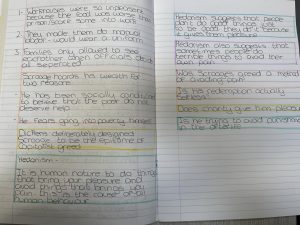 1- Workhouses were so unpleasant
because the food was worse than
prison/scare some into accepting
2. They made them do manual
labour / wear a uniform
3. Families only allowed to see
eachother when officials decided
all seperated
Scrooge hoards his wealth for
two reasons
He has been socially conditioned
to believe that the poor do not
deserve help
He fears going into poverty himself
Dickens deliberately designed
Scrooge to be the epitome of
capitalist greed
Hedonism -
It is human nature to do things
that bring your pleasure and
avoid things that brings you
pain. This is the cause of all
human behaviour
Hedonism suggests that people
don't do good things just
to be good they do it because
it gives them pleasure
Hedonism also suggests that
sometimes people do
terrible things to avoid their
own pain
Was Scrooges greed a method
of avoiding pain
Is his redemption actually
selfless?
Does charity give him pleasure
Is he trying to avoid punishment
in the afterlife